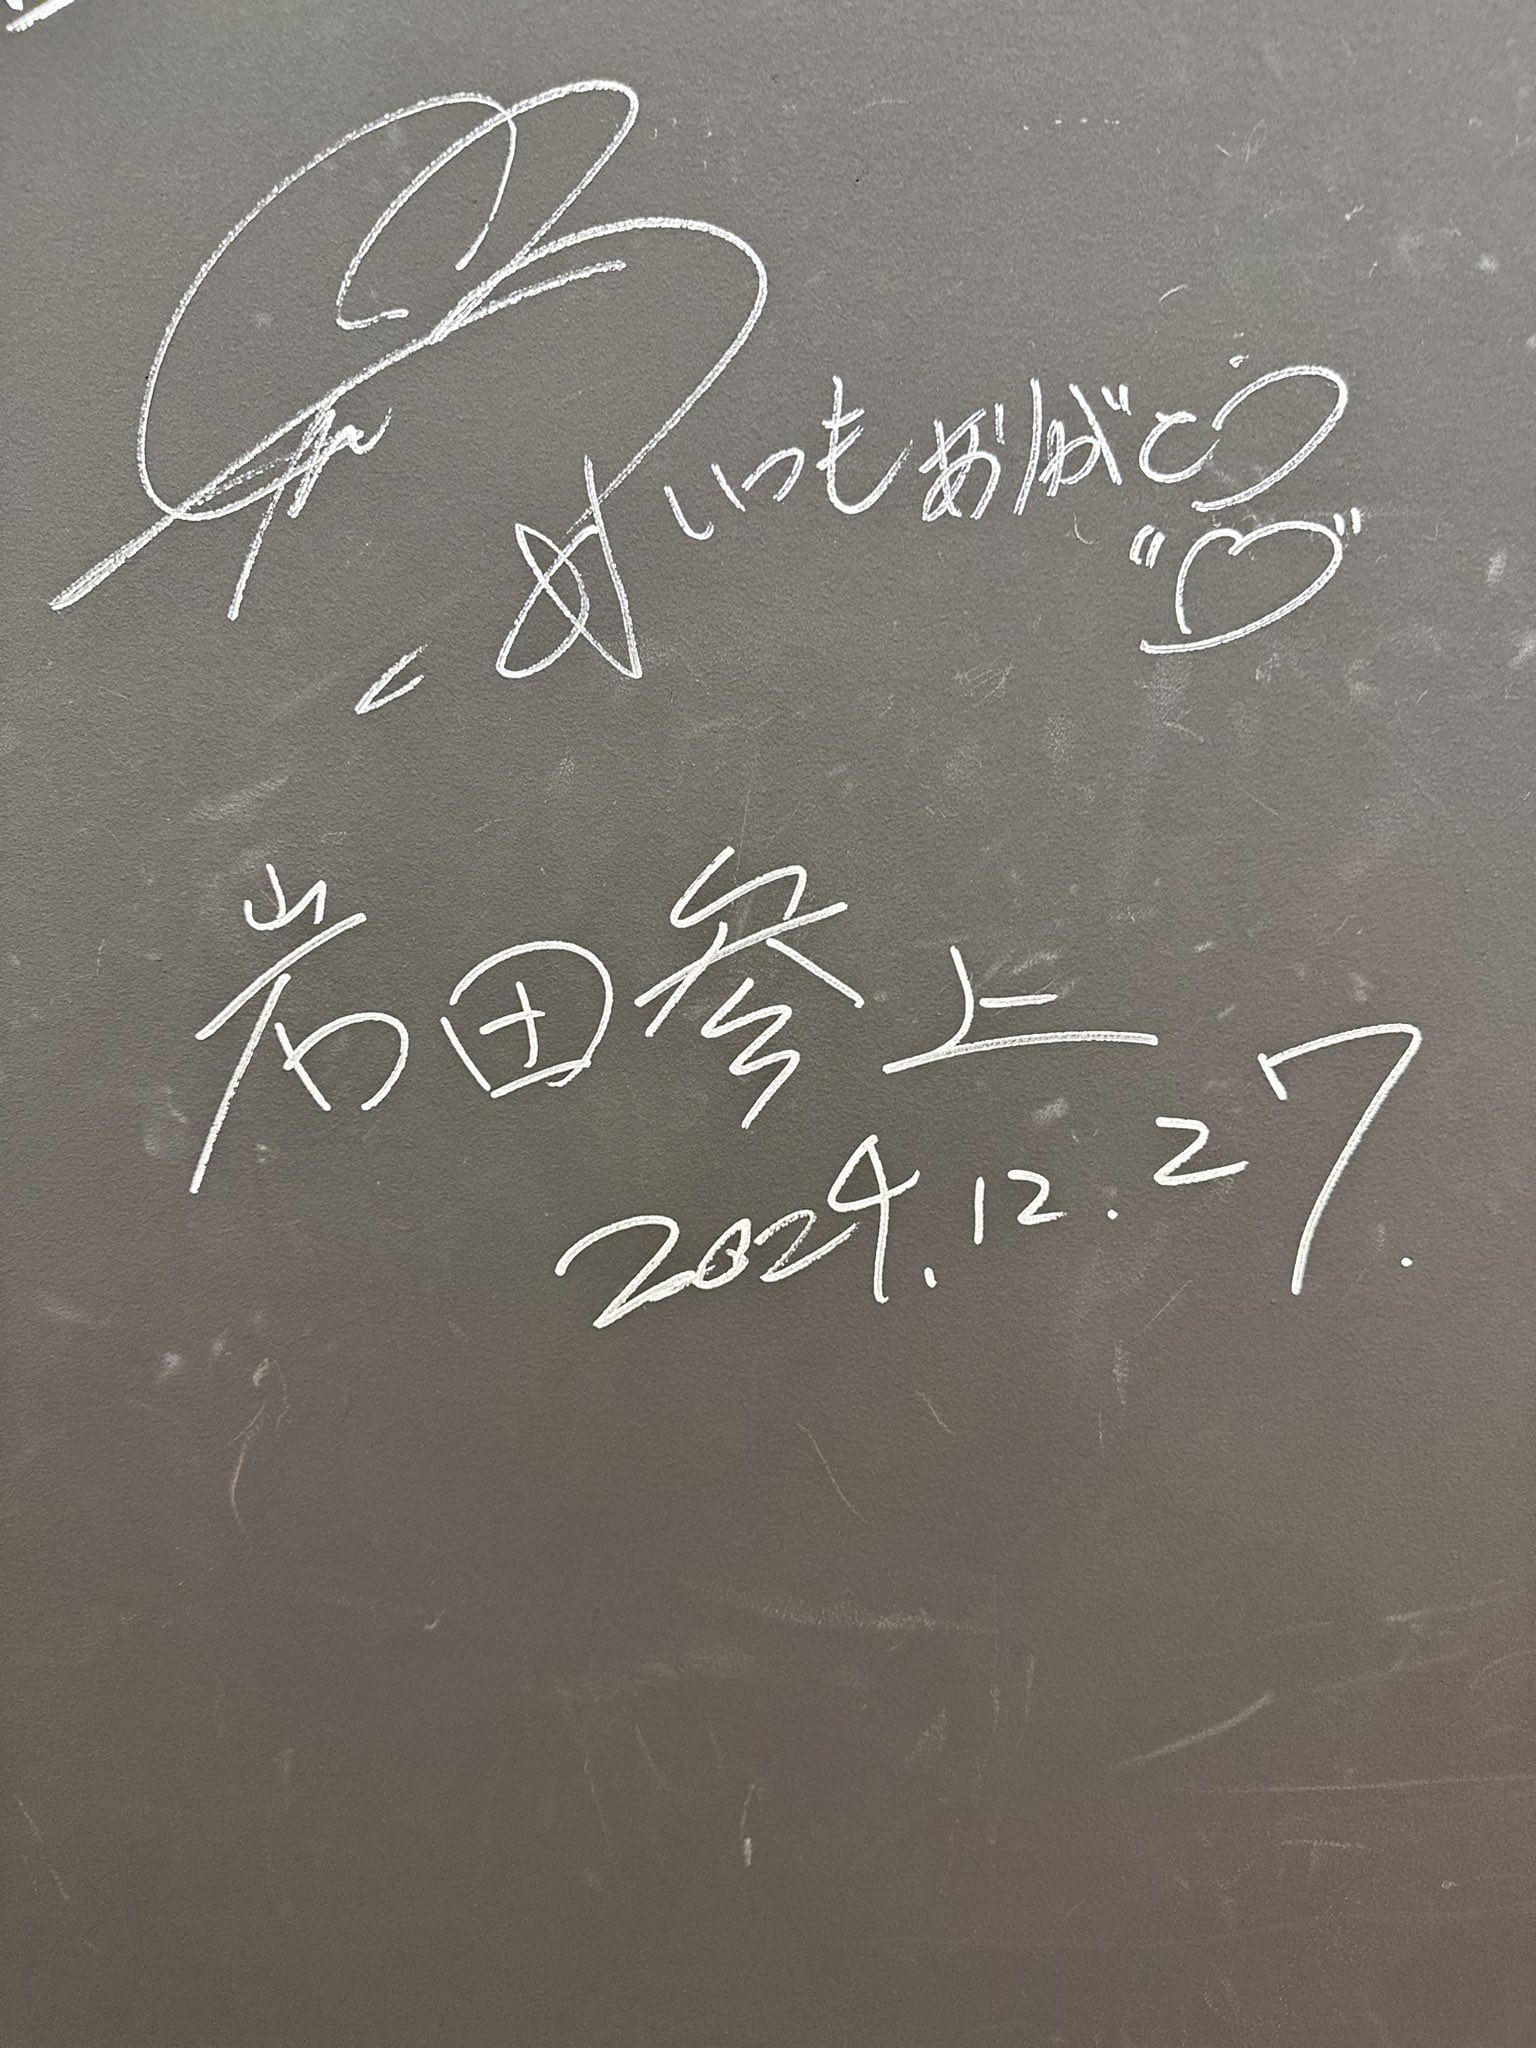 いつもありがとう
"♡"
岩田参上
2024.12.27.